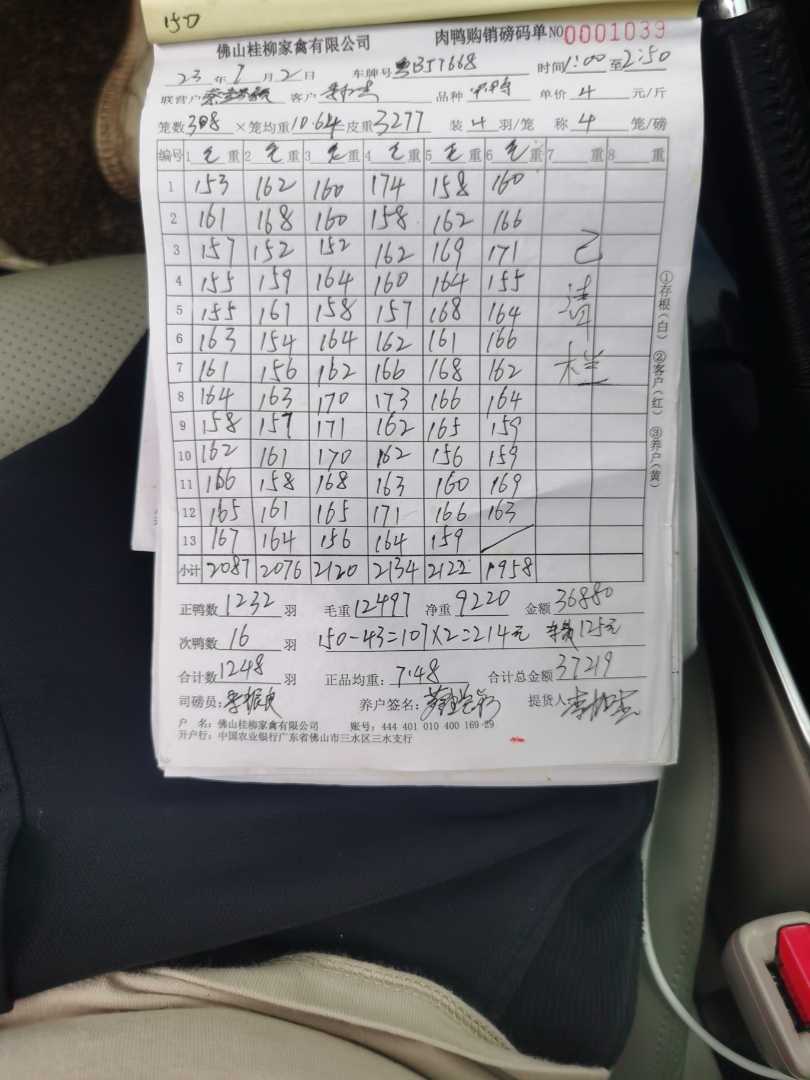 150
佛山桂柳家禽有限公司 肉鸭购销磅码单 NO 0001039
23 年 7 月 2 日 车牌号 粤B57668 时间 1:00 至 2:50
联营户 客户 品种 单价 4 元/斤
笼数 308 ×笼均重 10.64 皮重 3277 装 4 羽/笼 称 4 笼/磅
编号 1 毛 重 2 毛 重 3 毛 重 4 毛 重 5 毛 重 6 毛 重 7 重 8 重
1 153 162 160 174 158 160
2 161 168 160 158 162 166
3 157 152 152 162 169 171 已
4 155 159 164 160 164 155
5 155 161 158 157 168 164 清
6 163 154 164 162 161 166
7 161 156 162 166 168 162 栏
8 164 163 170 173 166 164
9 158 157 171 162 165 159
10 162 161 170 162 156 159
11 166 158 168 163 160 169
12 165 161 165 171 166 163
13 167 164 156 164 159
小计 2087 2076 2120 2134 2122 1958
①存根(白) ②客户(红) ③养户(黄)
正鸭数 1232 羽 毛重 12497 净重 9220 金额 36880
次鸭数 16 羽 150-43=107×2=214元 125元
合计数 1248 羽 正品均重: 7.48 合计总金额 37219
司磅员: 养户签名: 提货人
户 名: 佛山桂柳家禽有限公司 账号: 444 401 010 400 169 29
开户行: 中国农业银行广东省佛山市三水区三水支行